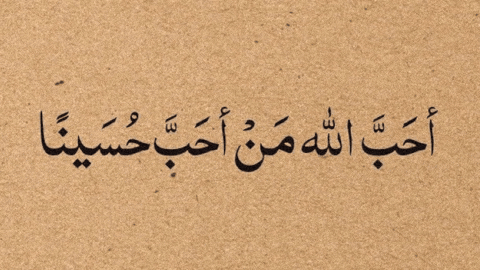 أحَبَّ الله مَنْ أحَبَّ حُسَينًا